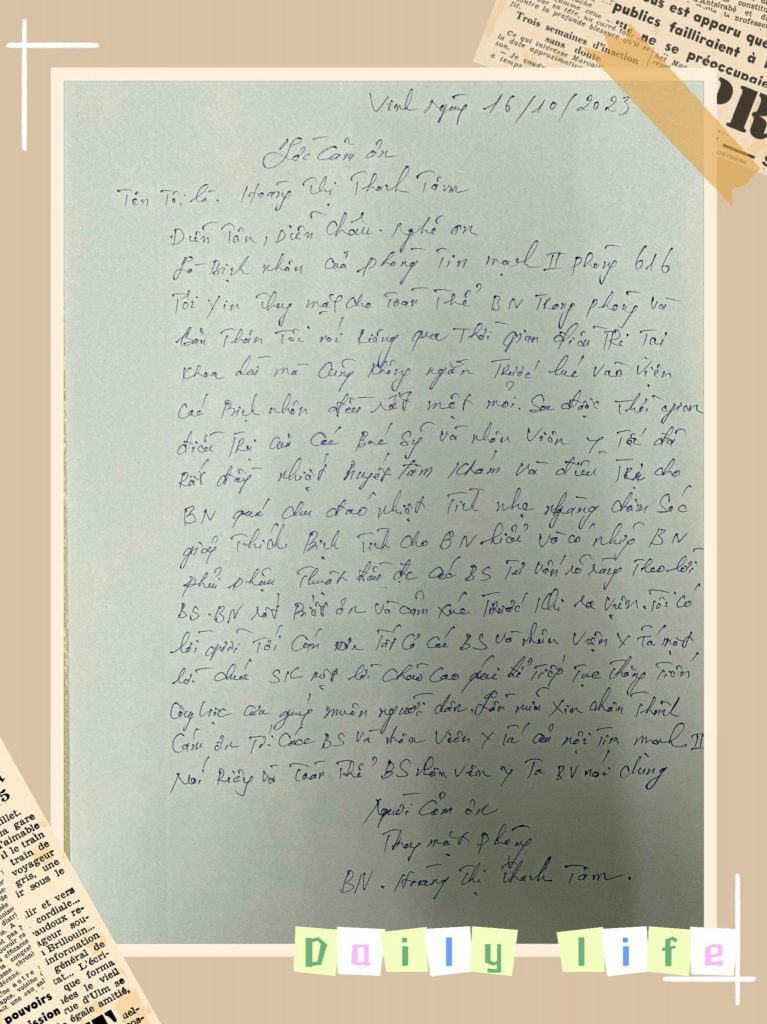 Vinh Ngày 16/10/2023
Tên Tôi là. Hoàng Thị Thanh Tâm
Diễn Tân, Diễn Châu. Nghệ An
Là Bệnh nhân của phòng Tim mạch II phòng 616
Tôi xin thay mặt cho Toàn Thể BN Trong phòng và
bản Thân Tôi nói Riêng qua Thời gian điều Trị Tại
khoa dài mà Cũng không ngắn Trước lúc vào viện
Các Bệnh nhân đều rất mệt mỏi. Thời gian
điều Trị của Các Bác Sỹ và nhân viên y Tế đã
Rất nhiệt huyết Tâm khám và điều Trị cho
BN quá chu đáo nhiệt Tình nhẹ nhàng chăm Sóc
giải Thích Bệnh Tình cho BN hiểu và có BN
phải phẩu Thuật đều đc Các BS Tư vấn rõ ràng Theo lời
BS. BN rất Biết ơn và cảm xúc Trước khi ra viện. Tôi có
lời gửi Tới Cảm ơn Tất Cả Các BS và nhân viện y Tá một
lời chúc SK một lời chào Cao để Tiếp Tục Thăng Tiến
Công việc cứu giúp muôn người dân. Lần nữa Xin chân Thành
Cảm ơn Tới Các BS và nhân viên y Tá nội Tim mạch II
Nói Riêng và Toàn Thể BS nhân viên y Ta BV nói chung
Người Cảm ơn
Thay mặt phòng
BN. Hoàng Thị Thanh Tâm.
Daily life